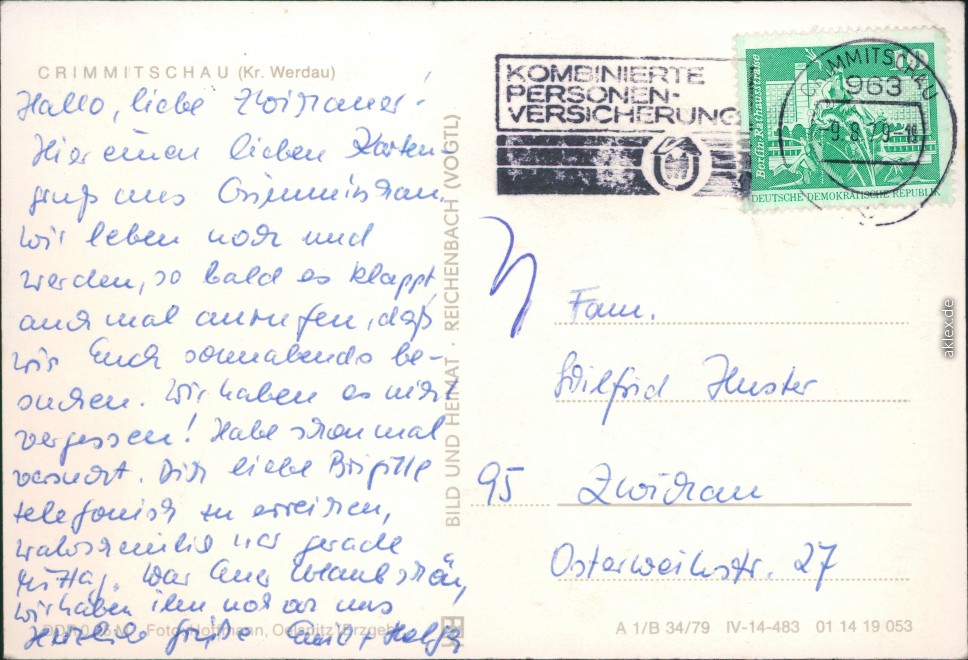 CRIMMITSCHAU (Kr. Werdau)
Hallo, liebe Zwickauer!
Hier einen lieben Karten-
gruß aus Crimmitschau.
Wir leben noch und
werden, so bald es klappt
auch mal anrufen, daß
wir Euch sonnabends be-
suchen. Wir haben es nicht
vergessen! Habe schon mal
versucht, Dich liebe Brigitte
telefonisch zu erreichen,
wahrscheinlich war gerade
Mittag. War Euer Urlaub schön,
wir haben ihn noch vor uns
Herzliche Grüße
Helga
DDR Foto: Hoffmann, Oelsnitz (Erzgeb.)
BILD UND HEIMAT · REICHENBACH (VOGTL)
KOMBINIERTE
PERSONEN-
VERSICHERUNG
CRIMMITSCHAU
963
-9.8.79-18
Berlin-Rathausstrasse
10
DEUTSCHE DEMOKRATISCHE REPUBLIK
Fam.
Wilfried Huster
95 Zwickau
Osterweihstr. 27
A 1/B 34/79 IV-14-483 01 14 19 053
aklex.de